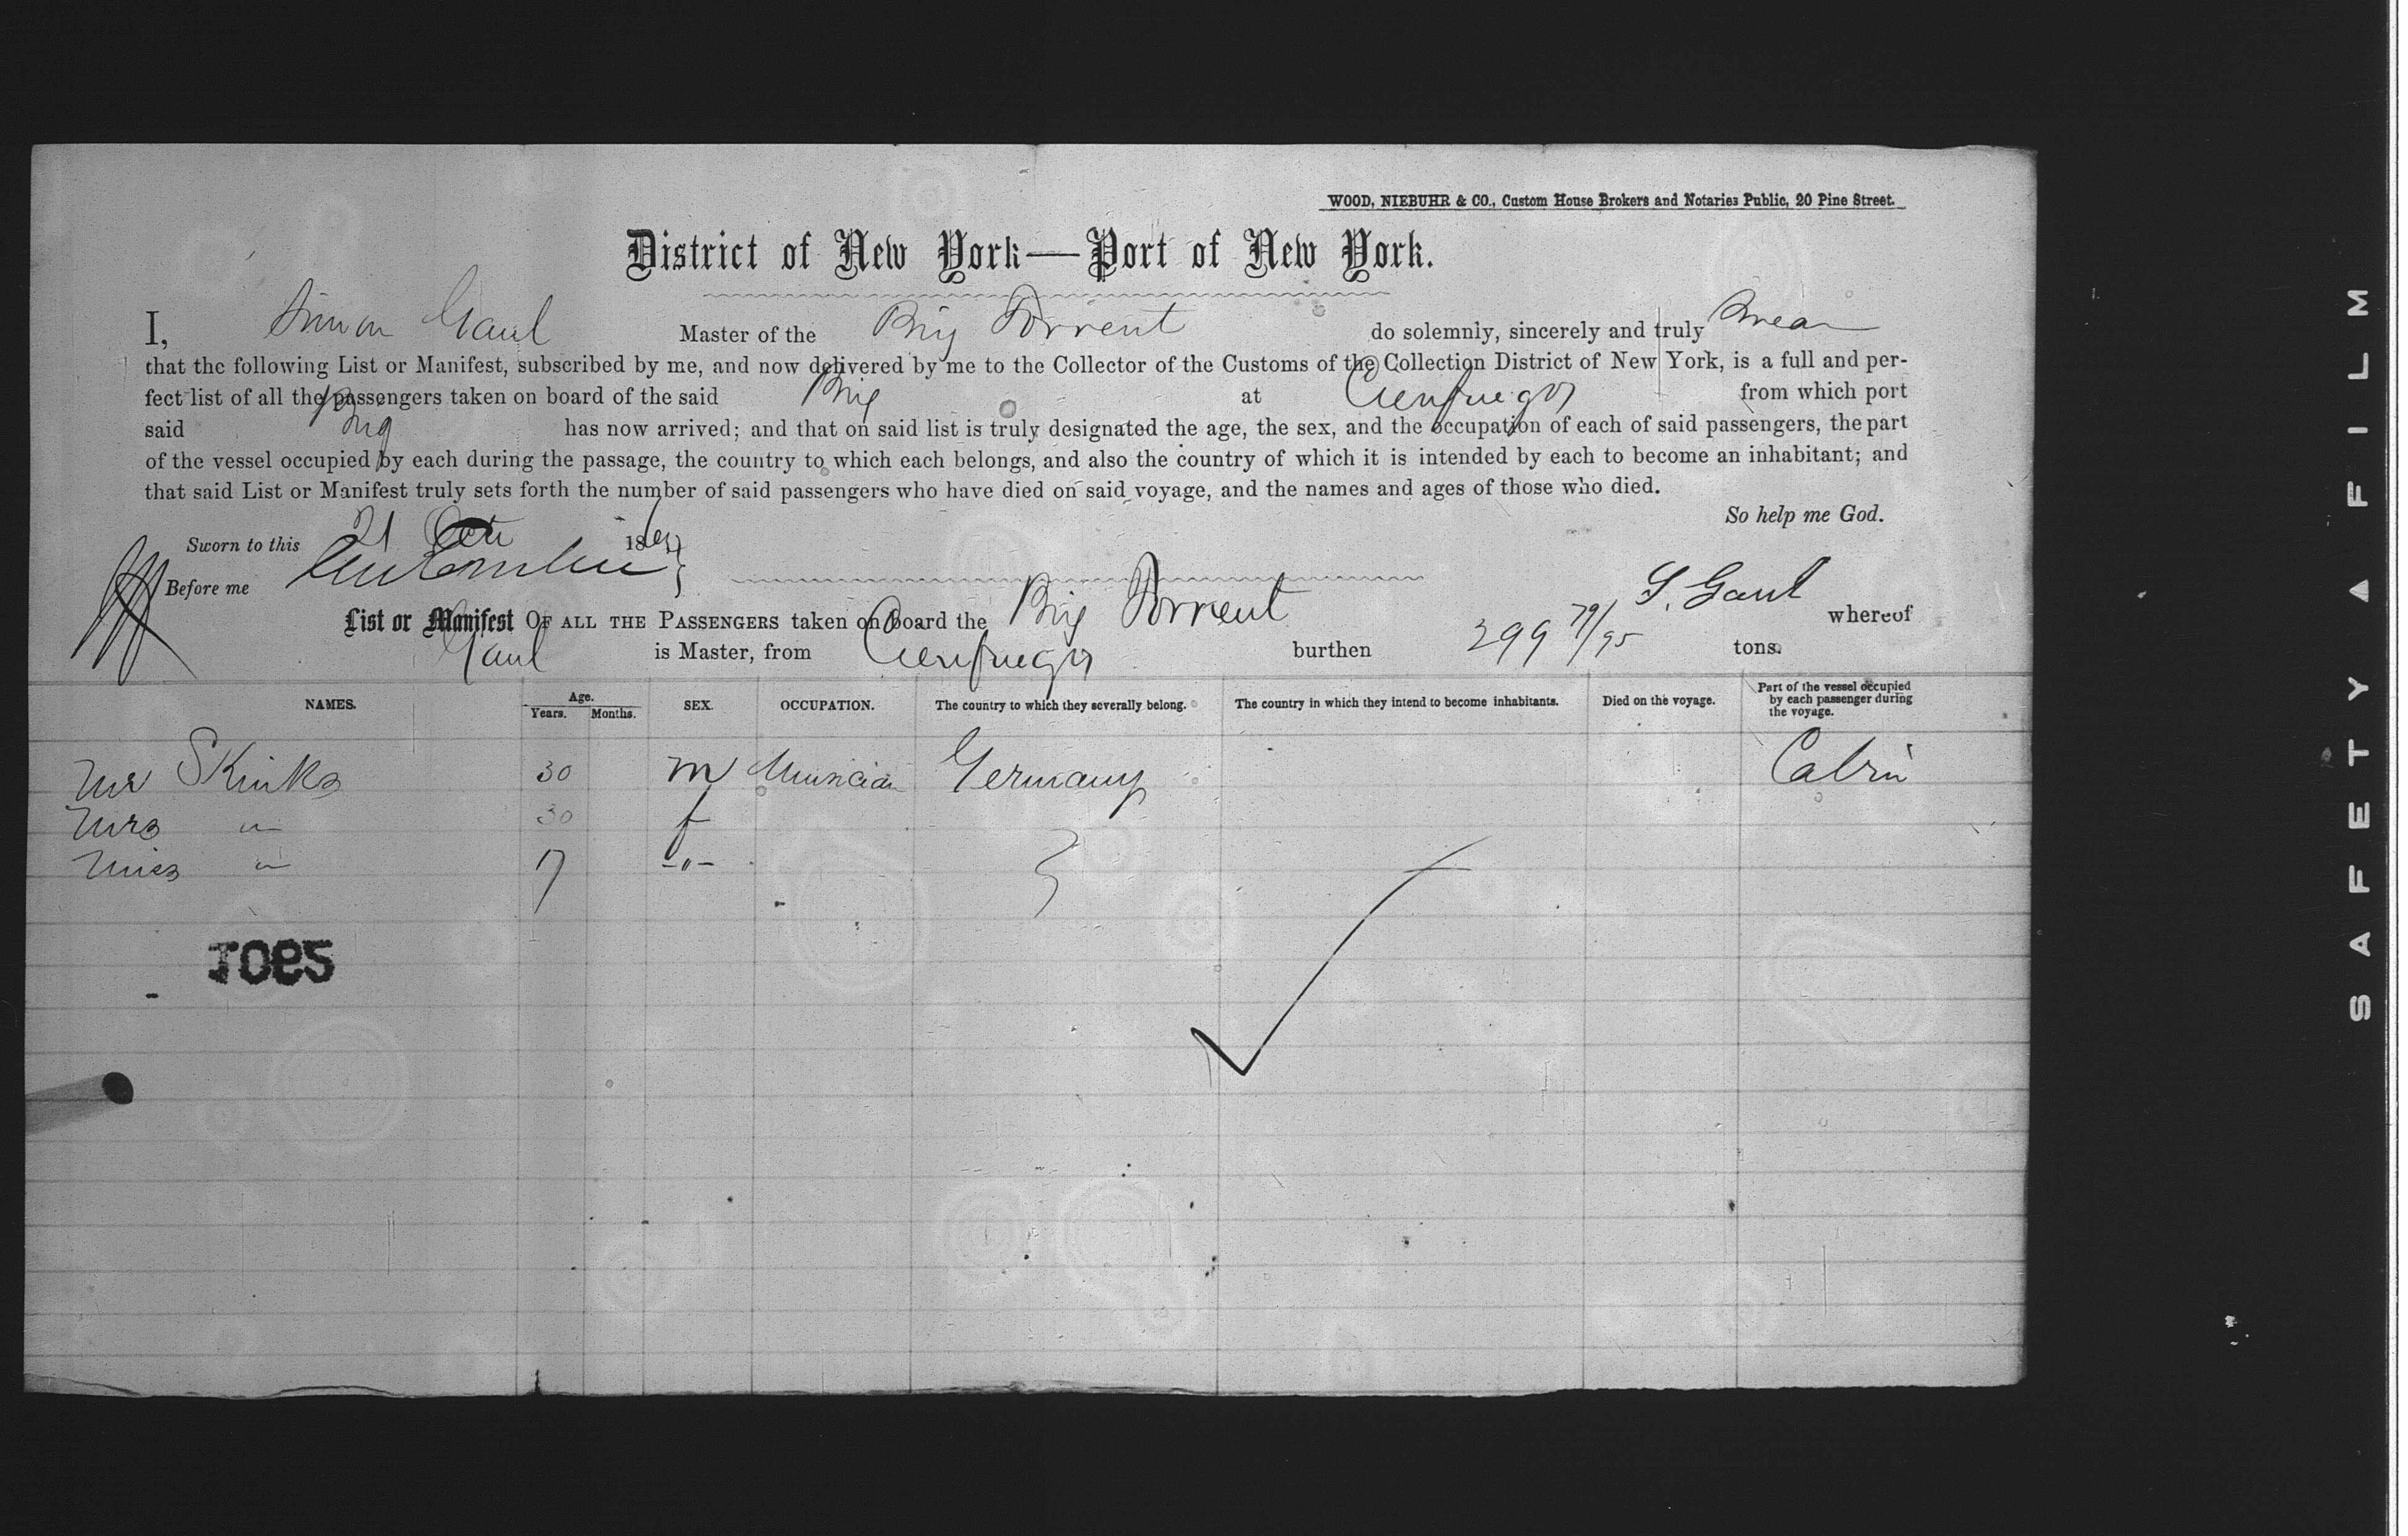 WOOD, NIEBUHR & CO., Custom House Brokers and Notaries Public, 20 Pine Street.
District of New York—Port of New York.
I, Simon Gaul Master of the Brig Torrent do solemnly, sincerely and truly Swear
that the following List or Manifest, subscribed by me, and now delivered by me to the Collector of the Customs of the Collection District of New York, is a full and per-
fect list of all the passengers taken on board of the said Brig at Cienfuegos from which port
said Brig has now arrived; and that on said list is truly designated the age, the sex, and the occupation of each of said passengers, the part
of the vessel occupied by each during the passage, the country to which each belongs, and also the country of which it is intended by each to become an inhabitant; and
that said List or Manifest truly sets forth the number of said passengers who have died on said voyage, and the names and ages of those who died.
So help me God.
Sworn to this 21 Oct 186
Before me
S. Gaul
List or Manifest OF ALL THE PASSENGERS taken on Board the Brig Torrent whereof
Gaul is Master, from Cienfuegos burthen 299 79/95 tons.
NAMES. Age. Years. Months. SEX. OCCUPATION. The country to which they severally belong. The country in which they intend to become inhabitants. Died on the voyage. Part of the vessel occupied by each passenger during the voyage.
Mr S Kinks 30 m Musician Germany Cabin
Mrs " 30 f
Miss " 17 -"-
SAFETY FILM